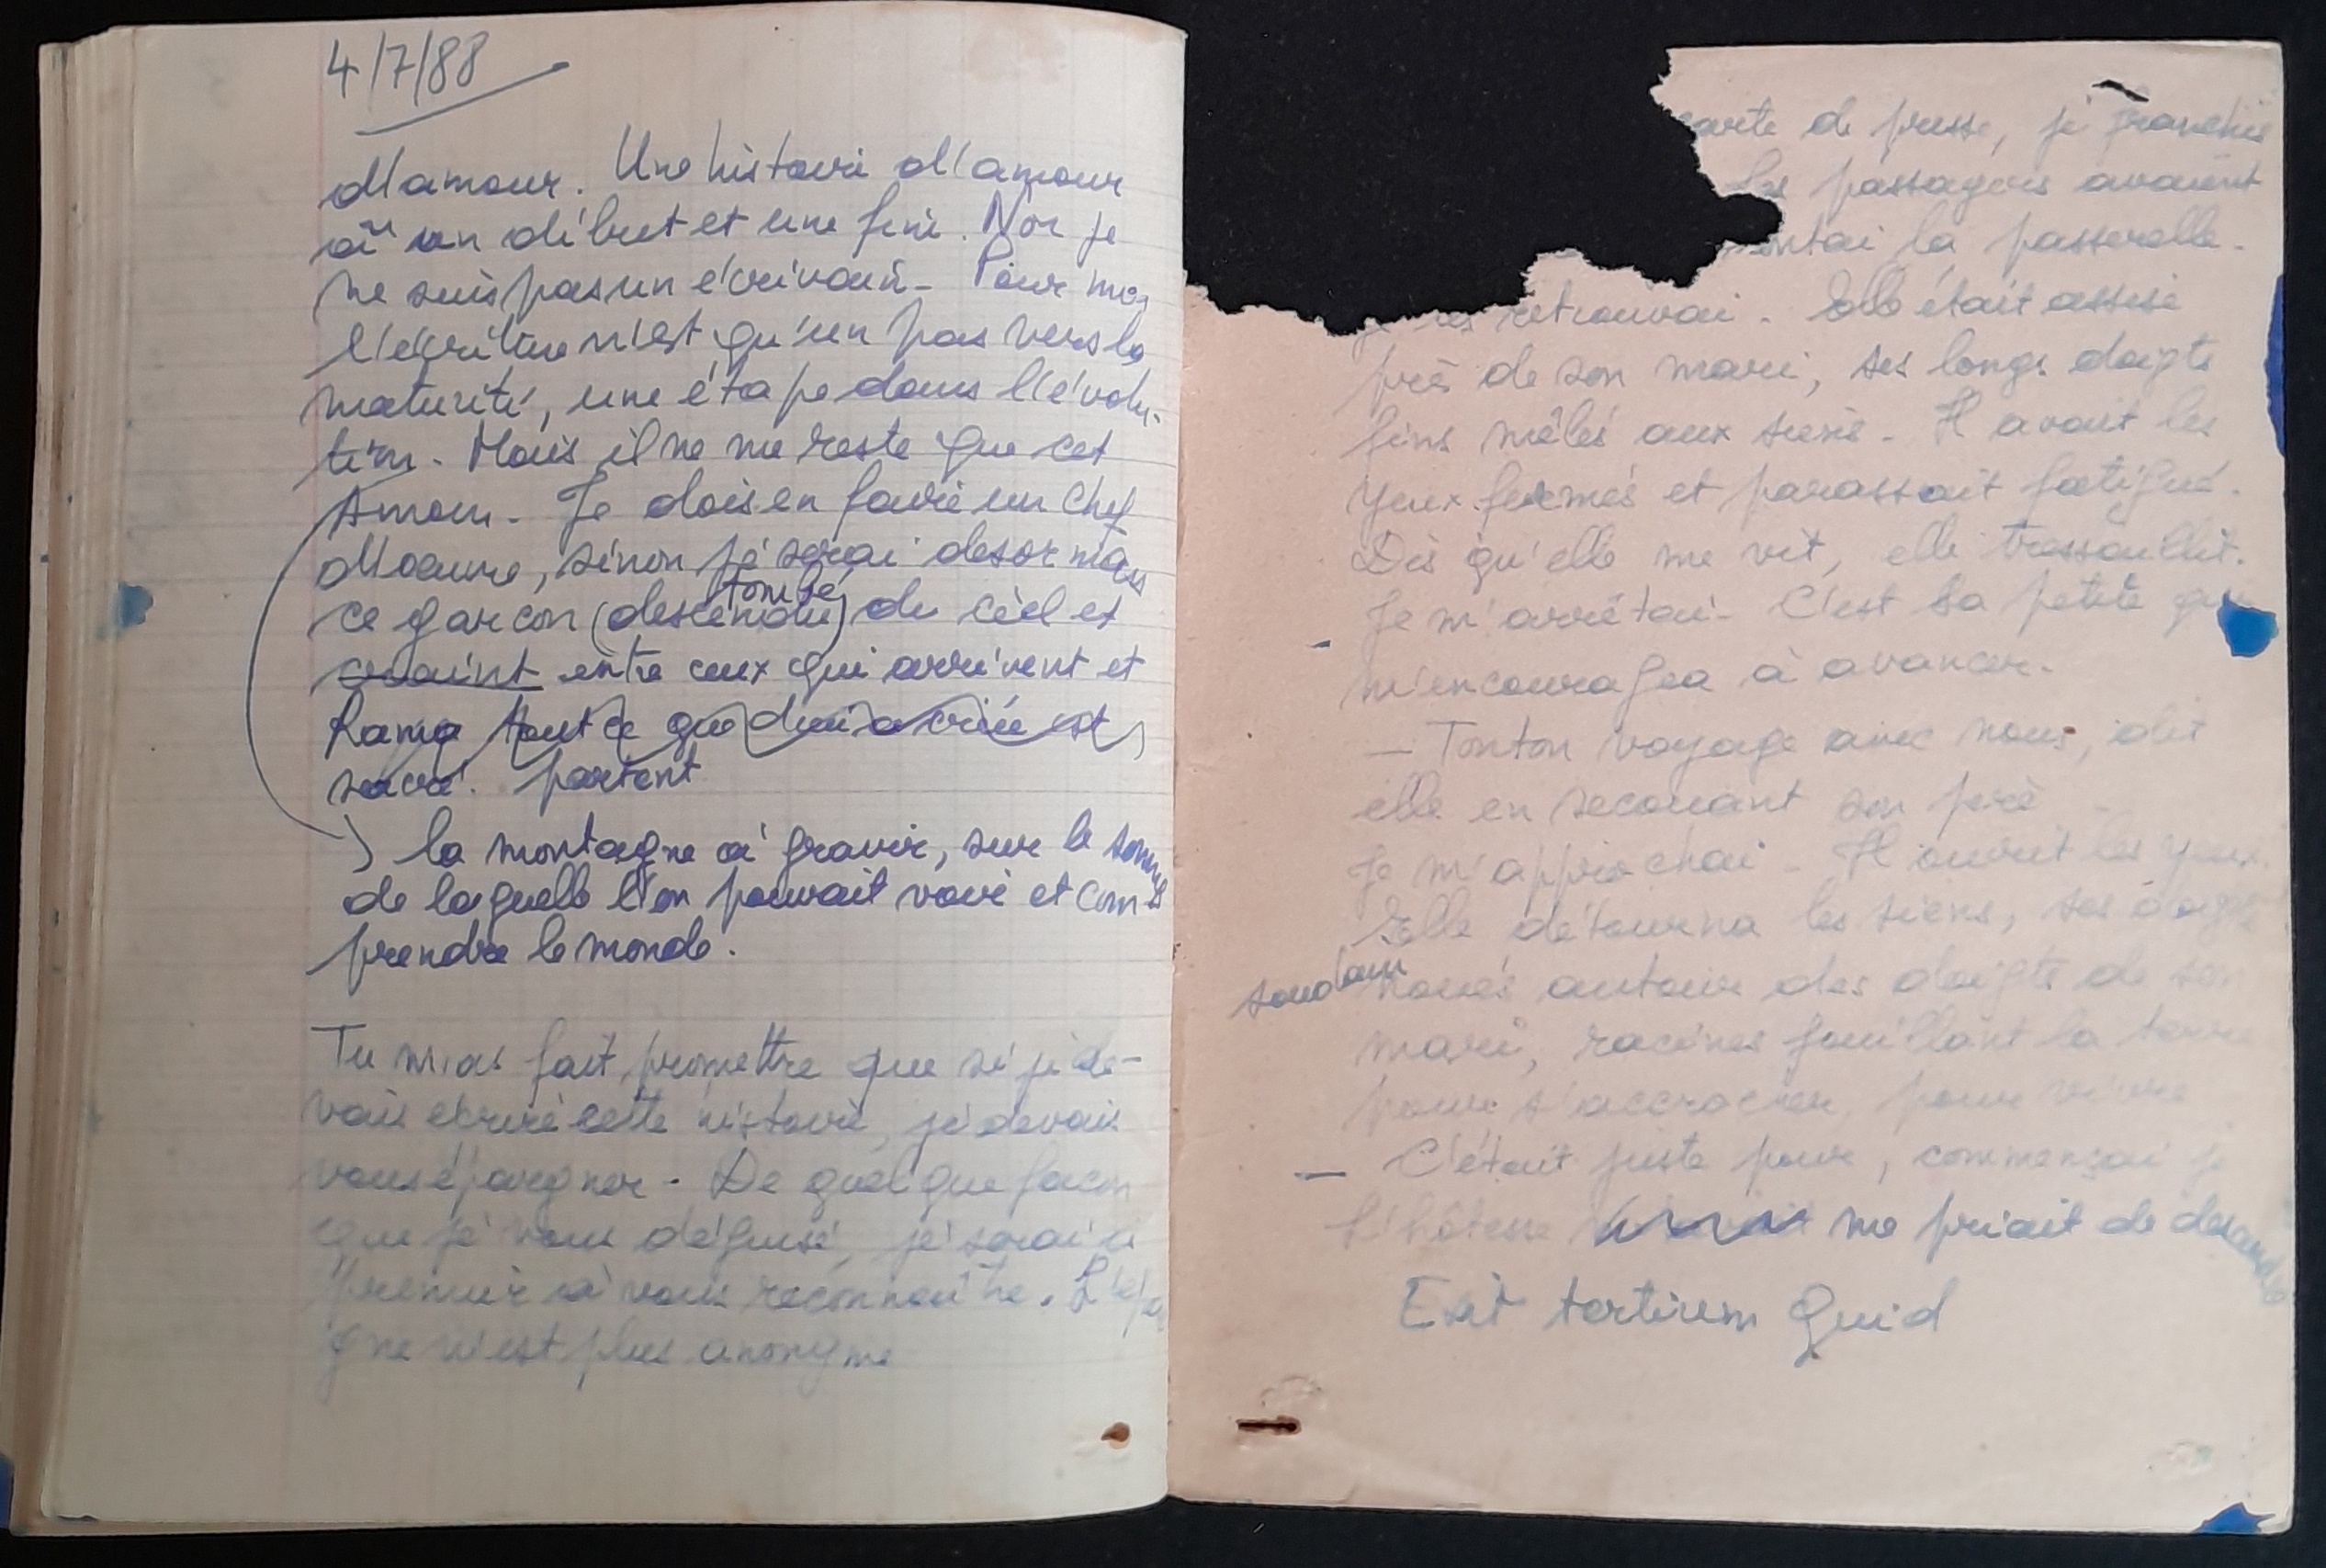 4/7/88
d'amour. Une histoire d'amour
a un début et une fin. Non je
ne suis pas un écrivain. Pour moi
l'écriture n'est qu'un pas vers la
maturité, une étape dans l'évolu-
tion. Mais il ne me reste que cet
Amour. Je dois en faire un chef
d'oeuvre, sinon je serai desormais
tombé
ce garçon (descendu) du ciel et
entre ceux qui arrivent et
Rama tout ce que est
sacré. partent
la montagne à gravir, sur le sommet
de laquelle l'on pouvait voir et com-
prendre le monde.
Tu m'as fait promettre que si je de-
vais écrire cette histoire, je devais
vous épargner. De quelque façon
que je vous déguise, je serai le
premier à vous reconnaître.
gne n'est plus anonyme
carte de presse, je franchis
les passagers avaient
la passerelle.
retrouvai. Elle était assise
près de son mari, ses longs doigts
fins mêlés aux siens. Il avait les
yeux fermés et parassait fatigué.
Dès qu'elle me vit, elle tressaillit.
Je m'arrêtai. C'est la petite qui
m'encouragea à avancer.
— Tonton voyage avec nous, dit
elle en secouant son père
Je m'approchai. Il ouvrit les yeux.
Elle détourna les siens, ses doigts
soudain
noués autour des doigts de son
mari, racines fouillant la terre
pour s'accrocher, pour vivre
— C'était juste pour, commençai je
L'hôtesse me priait de descendre
Exit tertium Quid